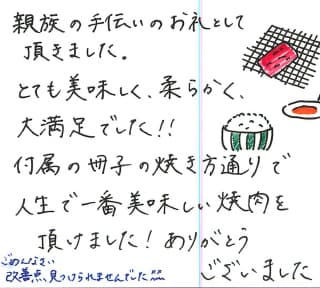 親族の手伝いのお礼として
頂きました。
とても美味しく、柔らかく、
大満足でした!!
付属の冊子の焼き方通りで
人生で一番美味しい焼肉を
頂けました!ありがとう
ございました
ごめんなさい
改善点、見つけられませんでした